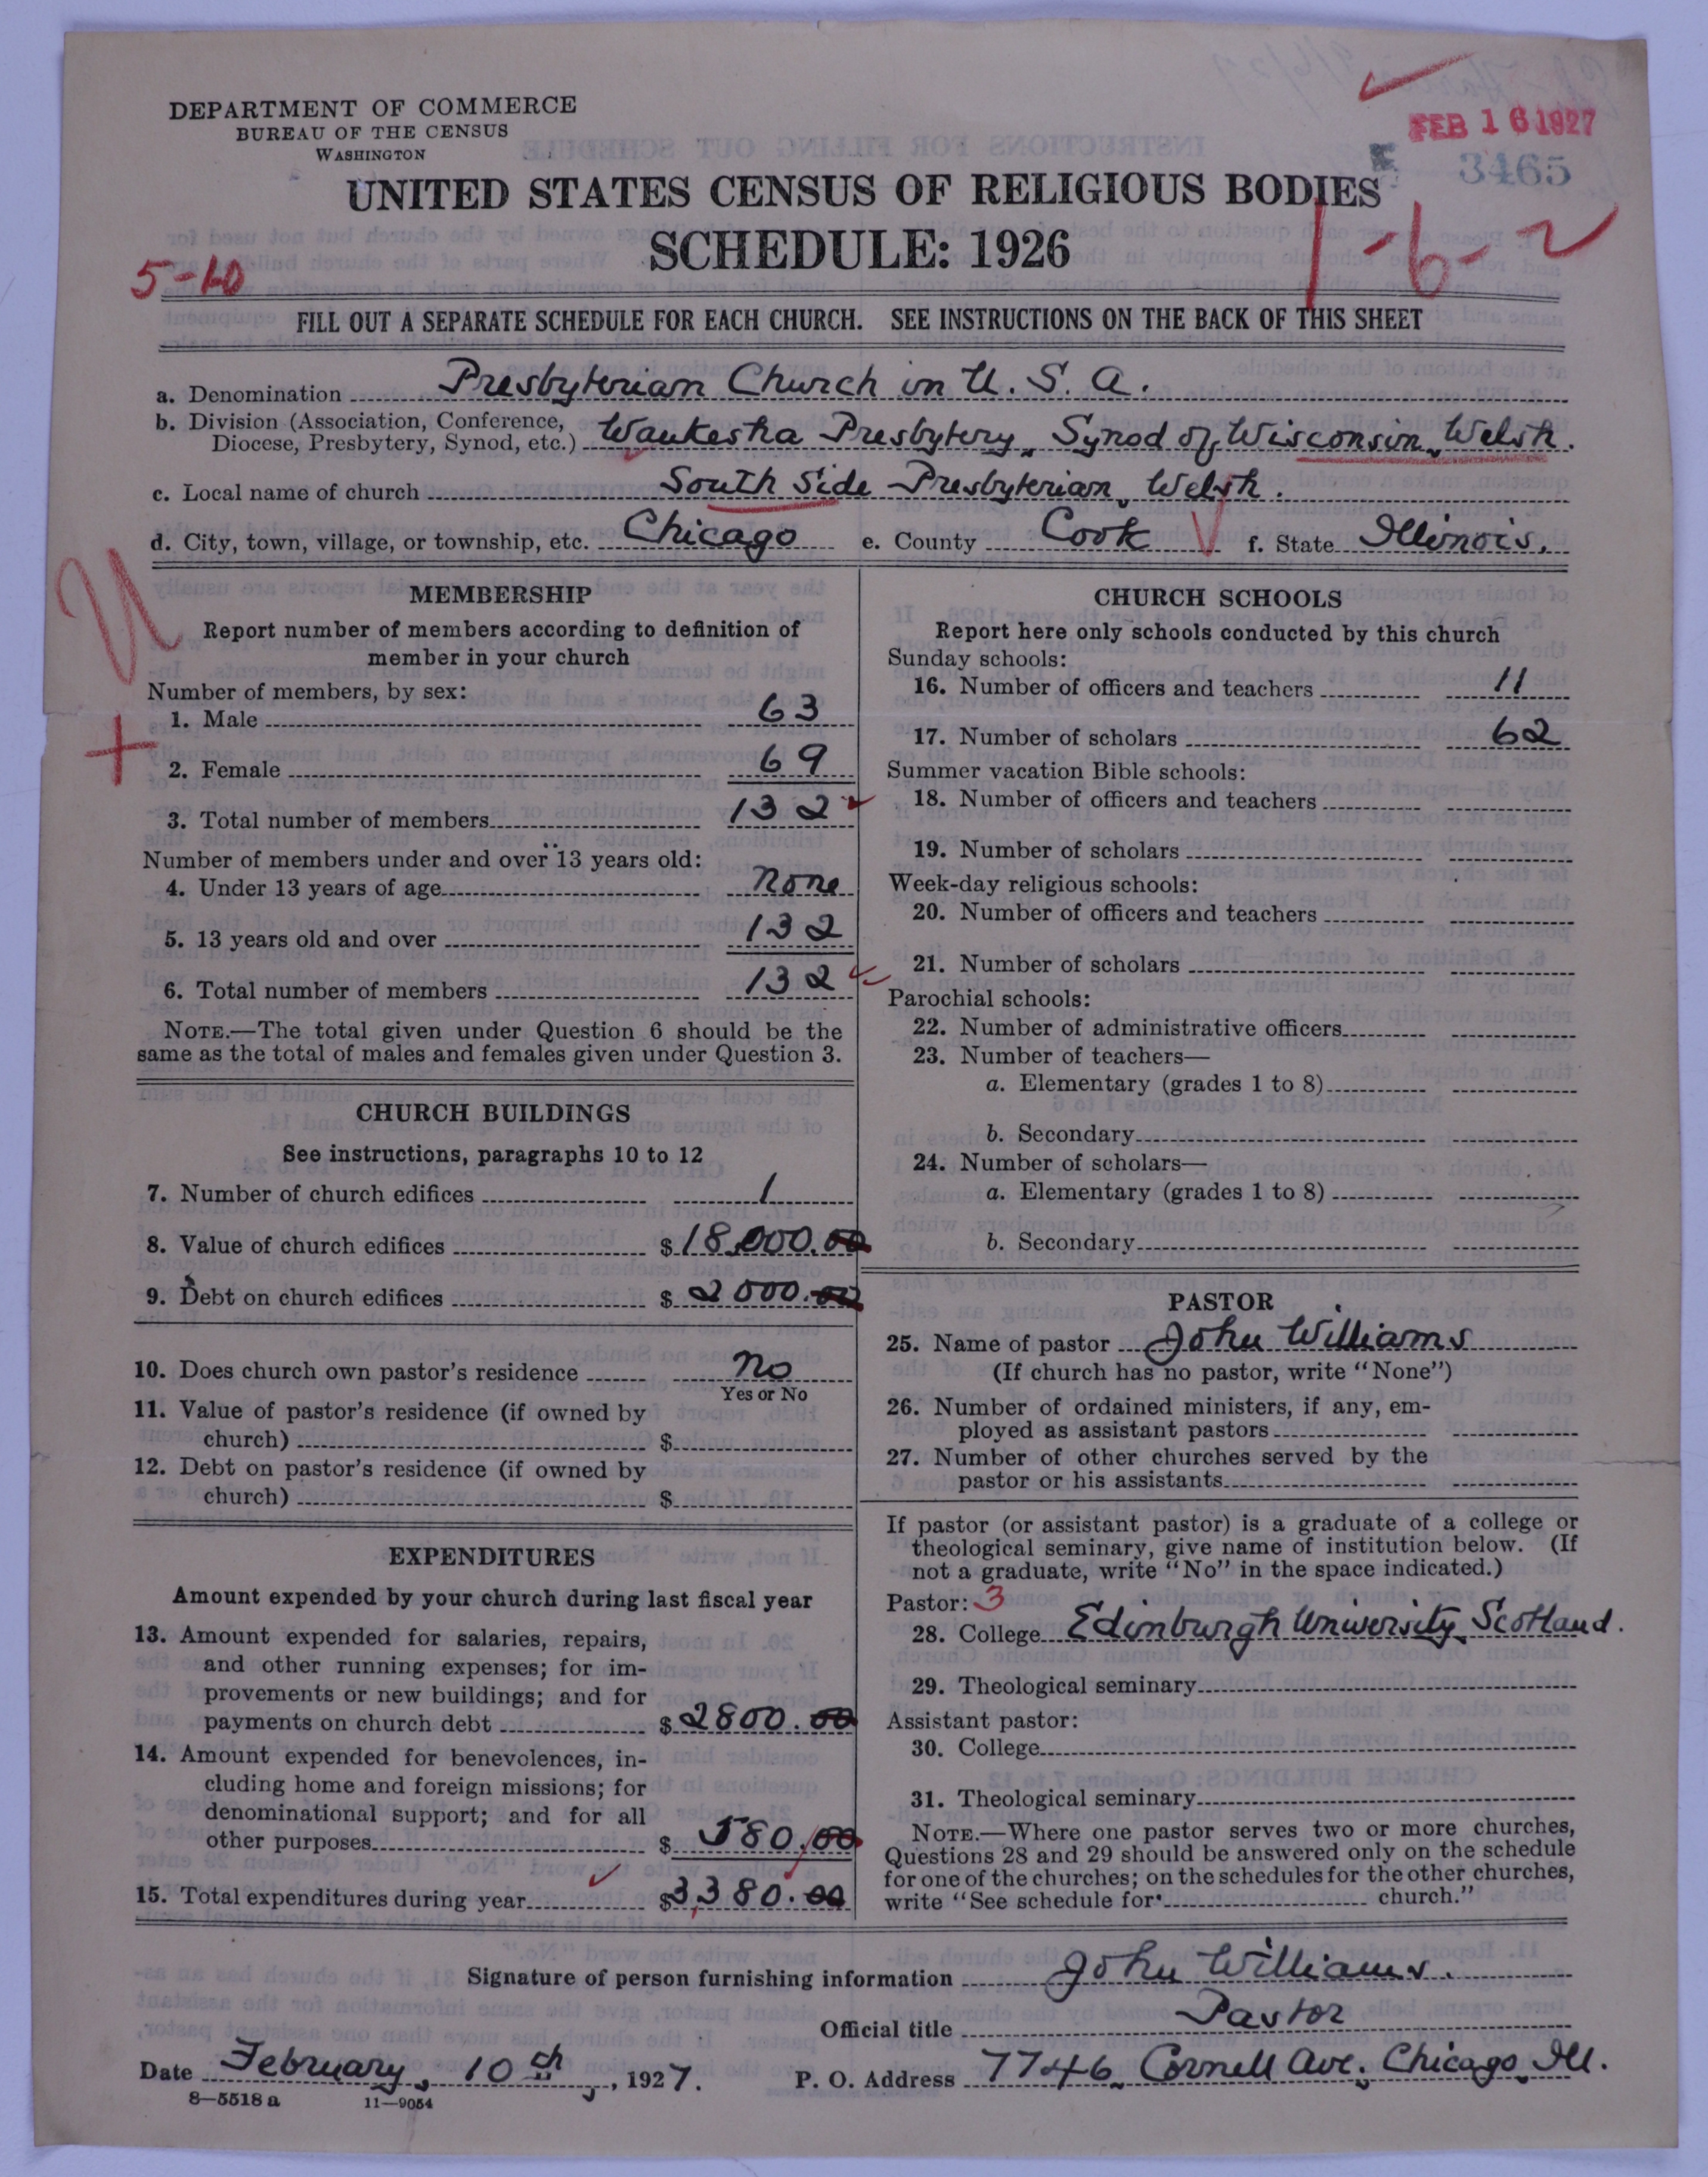 DEPARTMENT OF COMMERCE
BUREAU OF THE CENSUS
WASHINGTON
FEB 16 1927
3465
UNITED STATES CENSUS OF RELIGIOUS BODIES
SCHEDULE: 1926
5-10
1-6-2
FILL OUT A SEPARATE SCHEDULE FOR EACH CHURCH. SEE INSTRUCTIONS ON THE BACK OF THIS SHEET
a. Denomination Presbyterian Church in U. S. A.
b. Division (Association, Conference,
Diocese, Presbytery, Synod, etc.) Waukesha Presbytery, Synod of Wisconsin, Welsh.
c. Local name of church South Side Presbyterian, Welsh.
d. City, town, village, or township, etc. Chicago e. County Cook f. State Illinois.
MEMBERSHIP
Report number of members according to definition of
member in your church
Number of members, by sex:
1. Male 63
2. Female 69
3. Total number of members 132
Number of members under and over 13 years old:
4. Under 13 years of age None
5. 13 years old and over 132
6. Total number of members 132
NOTE.—The total given under Question 6 should be the
same as the total of males and females given under Question 3.
CHURCH BUILDINGS
See instructions, paragraphs 10 to 12
7. Number of church edifices 1
8. Value of church edifices $ 18,000.00
9. Debt on church edifices $ 2000.00
10. Does church own pastor's residence No
Yes or No
11. Value of pastor's residence (if owned by
church) $
12. Debt on pastor's residence (if owned by
church) $
EXPENDITURES
Amount expended by your church during last fiscal year
13. Amount expended for salaries, repairs,
and other running expenses; for im-
provements or new buildings; and for
payments on church debt $ 2800.00
14. Amount expended for benevolences, in-
cluding home and foreign missions; for
denominational support; and for all
other purposes $ 580.00
15. Total expenditures during year $ 3,380.00
CHURCH SCHOOLS
Report here only schools conducted by this church
Sunday schools:
16. Number of officers and teachers 11
17. Number of scholars 62
Summer vacation Bible schools:
18. Number of officers and teachers
19. Number of scholars
Week-day religious schools:
20. Number of officers and teachers
21. Number of scholars
Parochial schools:
22. Number of administrative officers
23. Number of teachers—
a. Elementary (grades 1 to 8)
b. Secondary
24. Number of scholars—
a. Elementary (grades 1 to 8)
b. Secondary
PASTOR
25. Name of pastor John Williams
(If church has no pastor, write "None")
26. Number of ordained ministers, if any, em-
ployed as assistant pastors
27. Number of other churches served by the
pastor or his assistants
If pastor (or assistant pastor) is a graduate of a college or
theological seminary, give name of institution below. (If
not a graduate, write "No" in the space indicated.)
Pastor: 3
28. College Edinburgh University, Scotland.
29. Theological seminary
Assistant pastor:
30. College
31. Theological seminary
NOTE.—Where one pastor serves two or more churches,
Questions 28 and 29 should be answered only on the schedule
for one of the churches; on the schedules for the other churches,
write "See schedule for church."
Signature of person furnishing information John Williams.
Official title Pastor
Date February, 10th, 1927. P. O. Address 7746 Cornell Ave. Chicago Ill.
8—5518 a 11—9054